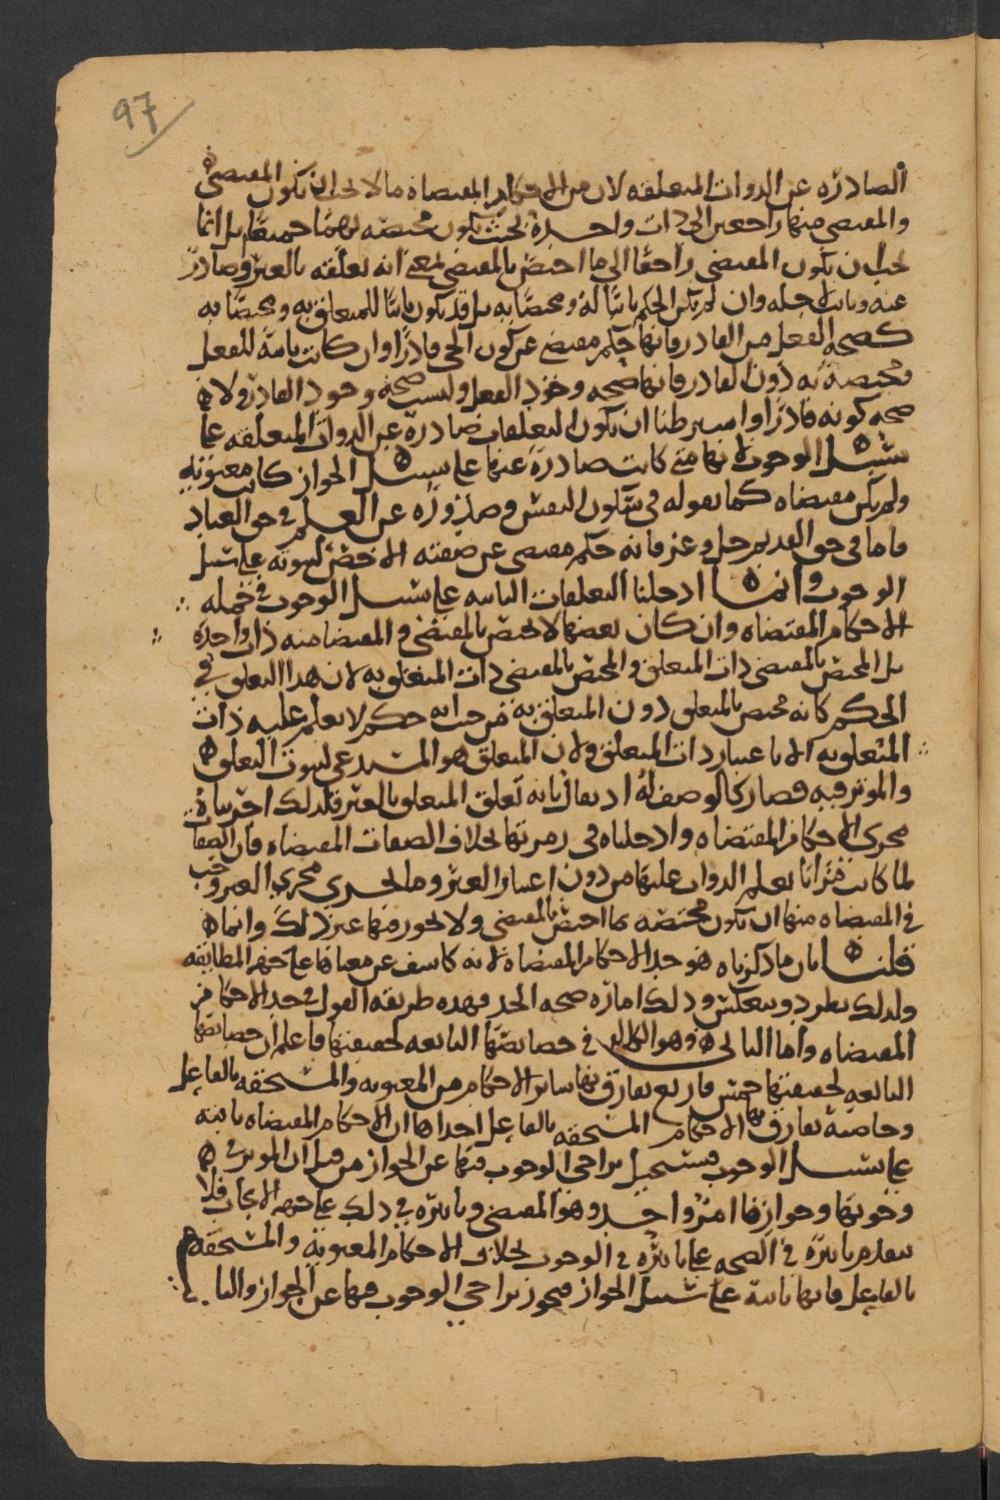 97
الصادره عن الذوات المتعلقه لان من الاحكام المقتضاه ما لا يجب ان يكون المقتضى
والمقتضي منها راجعين الى ذات واحده بحيث يكون مختصه بهما جميعا بل انما
يجب ان يكون المقتضى راجعا الى ما اختص بالمقتضي بمعنى انه تعلقه بالغير وصادر
عنه وثابت لاجله وان لم يكن الحكم ثابتا له ومختصا به بل قد يكون ثابتا للمتعلق به ومختصا به
كصحه الفعل من القادر فانها حكم مقتضى عن كون الحي قادرا وان كانت ثابته للفعل
ومختصه به دون القادر فانها صحه وجود الفعل وليست صحه وجود القادر ولا
صحه كونه قادرا وانما شرطنا ان يكون التعلقات صادره عن الذوات المتعلقه على
سبيل الوجوب لانها متى كانت صادره عنها على سبيل الجواز كانت معنويه
ولم يكن مقتضاه كما نقوله في سكون النفس وصدوره عن العلم في حق العباد
فاما في حق القديم جل وعز فانه حكم مقتضى عن صفته الاخص لثبوته على سبيل
الوجوب وانما ادخلنا التعلقات الثابته على سبيل الوجوب في جمله
الاحكام المقتضاه وان كان بعضها لا يختص بالمقتضي والمقتضا منه ذات واحده
بل المختص بالمقتضي ذات المتعلق والمختص بالمقتضى ذات المتعلق به لان هذا التعلق في
الحكم كانه مختص بالمتعلق دون المتعلق به من حيث انه حكم لا يعلم عليه ذات
المتعلق به الا باعتبار ذات المتعلق ولان المتعلق هو المستدعي لثبوت التعلق
والموثر فيه فصار كالوصف له اذ يقال بانه تعلق المتعلق بالغير فلذلك اجريناه
مجرى الاحكام المقتضاه وادخلناه في زمرتها بخلاف الصفات المقتضاه فان الصفات
لما كانت مزايا تعلم الذوات عليها من دون اعتبار الغير وما يجري مجرى الغير وجب
في المقتضاه منها ان يكون مختصه بما اختص بالمقتضي ولا يجوز فيها غير ذلك وانما
قلنا بان ما ذكرناه هو حد الاحكام المقتضاه لانه كاشف عن معناها على جهه المطابقه
ولذلك يطرد وينعكس وذلك اماره صحه الحد فهذه طريقه القول في حد الاحكام
المقتضاه واما الثاني وهو الكلام في خصائصها التابعه لحقيقتها فاعلم ان خصائصها
التابعه لحقيقتها خمس فاربع يفارق بها سائر الاحكام من المعنويه والمستحقه بالفاعل
وخاصه يفارق بها الاحكام المستحقه بالفاعل احداها ان الاحكام المقتضاه ثابته
على سبيل الوجوب فيستحيل تراخي الوجوب فيها عن الجواز من قبل ان الموثر في
وجوبها وجوازها امر واحد وهو المقتضي وتاثيره في ذلك على جهه الايجاب فلا
يتقدم تاثيره في الصحه على تاثيره في الوجوب بخلاف الاحكام المعنويه والمستحقه
بالفاعل فانها ثابته على سبيل الجواز فيجوز تراخي الوجوب فيها عن الجواز